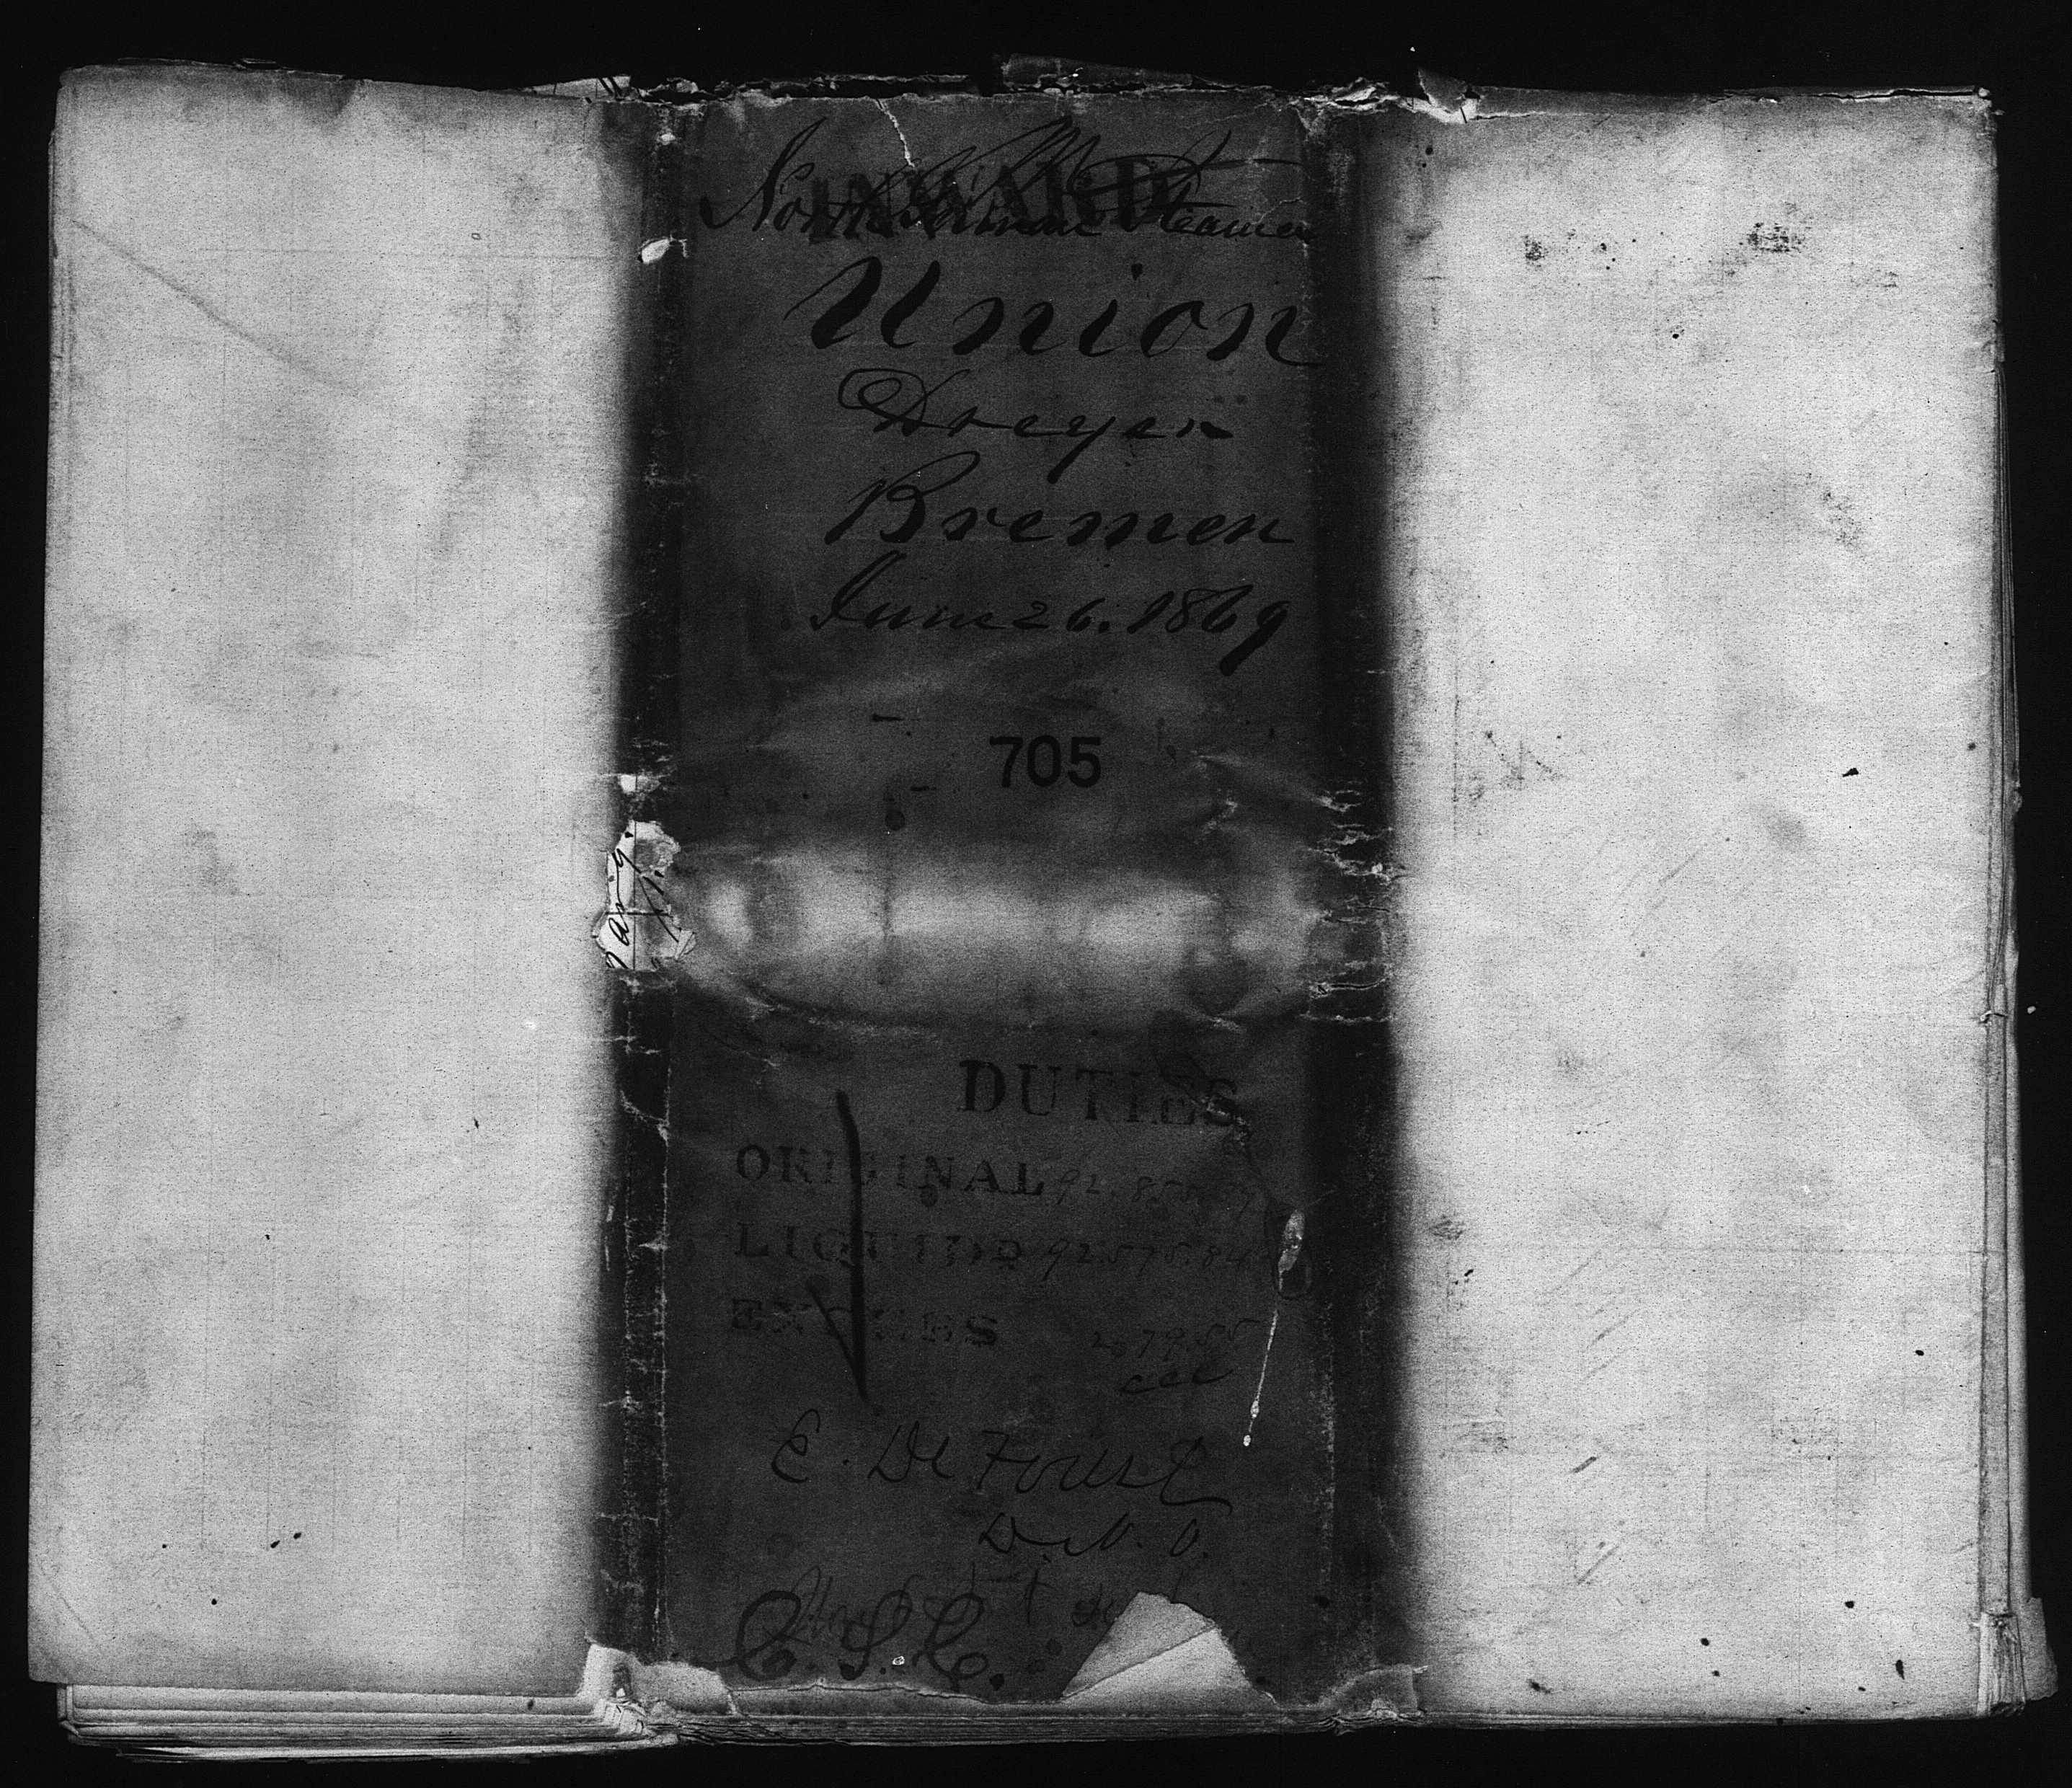 INWARD
North German Steamer
Union
Dreyer
Bremen
June 26. 1869
705
DUTIES
ORIGINAL
LIQUIDD 92.575.84
EXCEES
E. De Forest
D. N. O.
C. S. C.